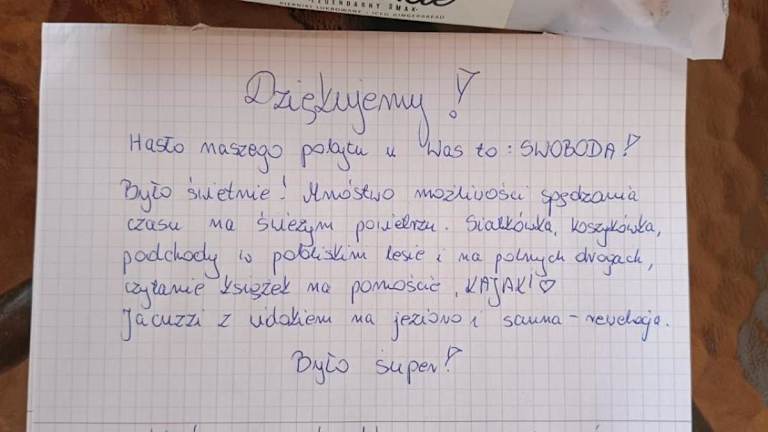 LEGENDARNY SMAK
PIERNIKI LUKROWANE • ICED GINGERBREAD
Dziękujemy!
Hasło naszego pobytu u Was to: SWOBODA!
Było świetnie! Mnóstwo możliwości spędzania
czasu na świeżym powietrzu. Siatkówka, koszykówka,
podchody w pobliskim lesie i na polnych drogach,
czytanie książek na pomoście, KAJAKI ♡
Jacuzzi z widokiem na jezioro i sauna - rewelacja.
Było super!